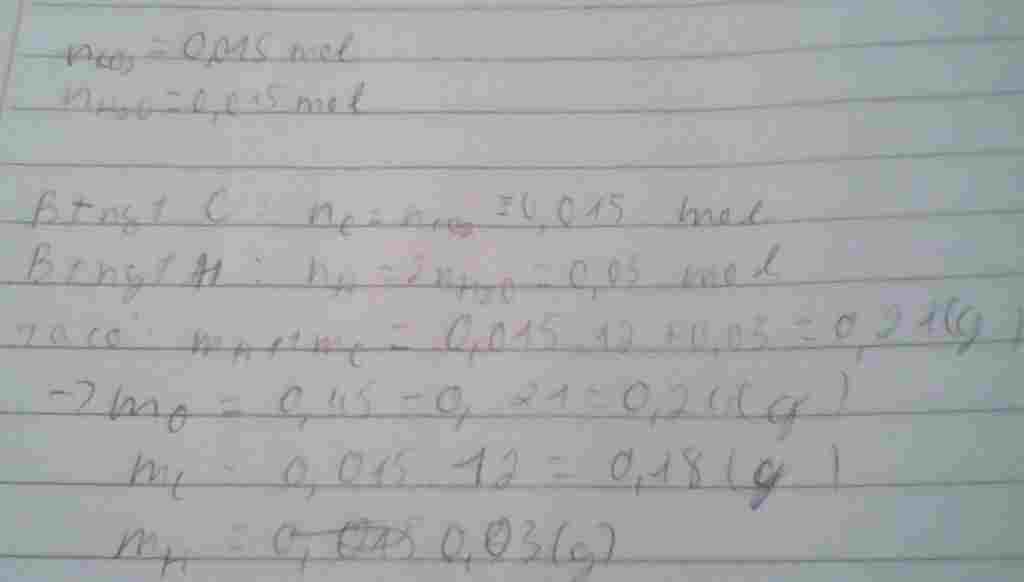 nCO2 = 0,015 mol
nH2O = 0,015 mol
BTngt C: nC = nCO2 = 0,015 mol
BTngt H: nH = 2nH2O = 0,03 mol
Ta có: mH + mC = 0,015.12 + 0,03 = 0,21(g)
-> mO = 0,45 - 0,21 = 0,24(g)
mC = 0,015.12 = 0,18(g)
mH = 0,03(g)